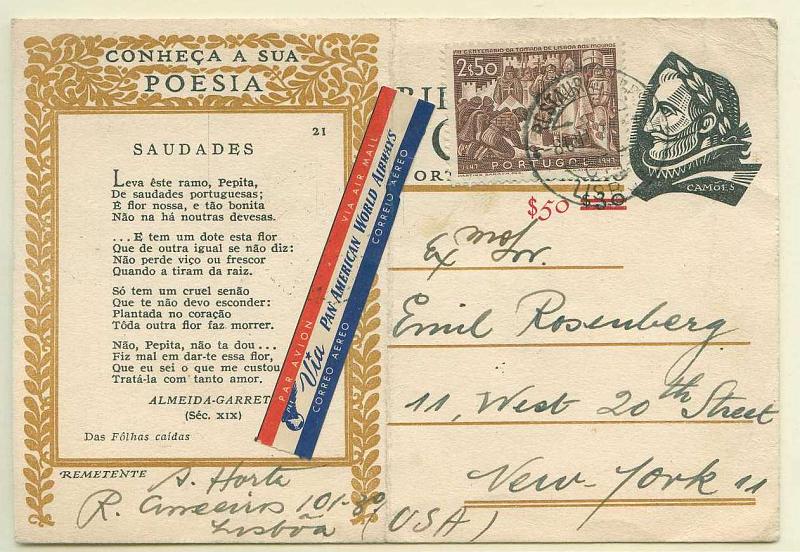 CONHEÇA A SUA
POESIA
21
SAUDADES
Leva êste ramo, Pepita,
De saudades portuguesas;
É flor nossa, e tão bonita
Não na há noutras devesas.
...E tem um dote esta flor
Que de outra igual se não diz:
Não perde viço ou frescor
Quando a tiram da raiz.
Só tem um cruel senão
Que te não devo esconder:
Plantada no coração
Tôda outra flor faz morrer.
Não, Pepita, não ta dou...
Fiz mal em dar-te essa flor,
Que eu sei o que me custou
Tratá-la com tanto amor.
ALMEIDA-GARRET
(Séc. XIX)
Das Fôlhas caídas
REMETENTE
A. Horta
R. 101-3º
Lisbôa
VIA AIR MAIL
CORREIO AEREO
PAR AVION
Via PAN AMERICAN WORLD AIRWAYS
CORREIO AEREO
VIII CENTENÁRIO DA TOMADA DE LISBOA AOS MOUROS
2$50
1147 PORTUGAL 1947
CAMÕES
$50
Exmo Sr.
Emil Rosenberg
11, West 20th Street
New-York 11
(USA)